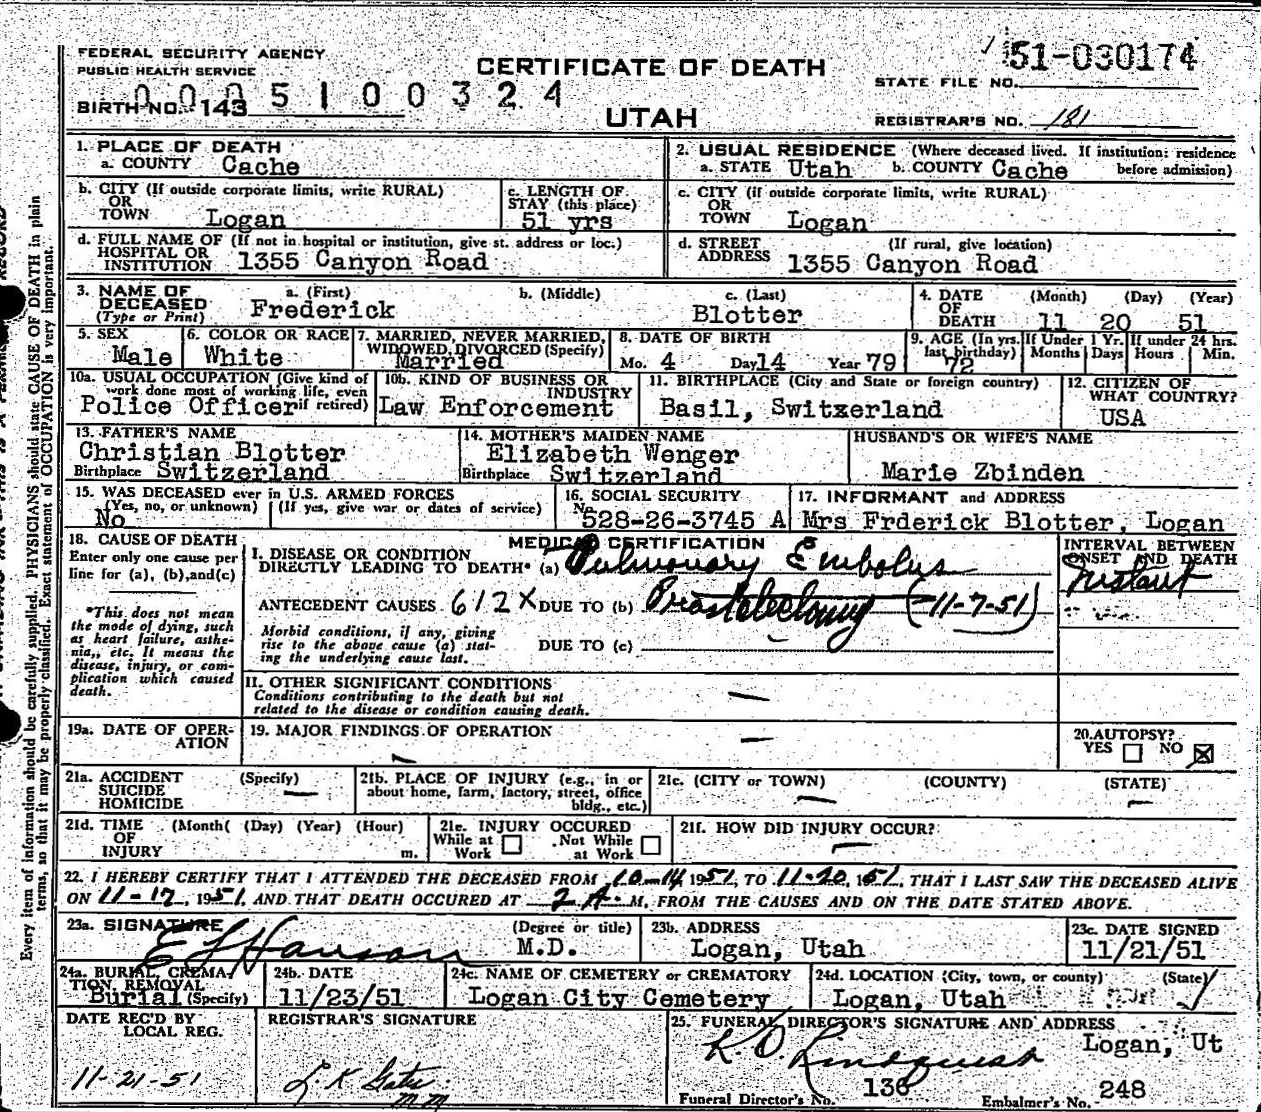 FEDERAL SECURITY AGENCY
PUBLIC HEALTH SERVICE
BIRTH NO. 143
0005100324
CERTIFICATE OF DEATH
UTAH
STATE FILE NO. 51-030174
REGISTRAR'S NO. 181
Every item of information should be carefully supplied. PHYSICIANS should state CAUSE OF DEATH in plain
terms, so that it may be properly classified. Exact statement of OCCUPATION is very important.
1. PLACE OF DEATH
a. COUNTY Cache
2. USUAL RESIDENCE (Where deceased lived. If institution: residence
a. STATE Utah b. COUNTY Cache before admission)
b. CITY (If outside corporate limits, write RURAL)
OR
TOWN Logan
c. LENGTH OF
STAY (this place)
51 yrs
c. CITY (if outside corporate limits, write RURAL)
OR
TOWN Logan
d. FULL NAME OF (If not in hospital or institution, give st. address or loc.)
HOSPITAL OR
INSTITUTION 1355 Canyon Road
d. STREET (If rural, give location)
ADDRESS 1355 Canyon Road
3. NAME OF DECEASED (Type or Print)
a. (First) Frederick
b. (Middle)
c. (Last) Blotter
4. DATE OF DEATH
(Month) (Day) (Year)
11 20 51
5. SEX
Male
6. COLOR OR RACE
White
7. MARRIED, NEVER MARRIED,
WIDOWED, DIVORCED (Specify)
Married
8. DATE OF BIRTH
Mo. 4 Day 14 Year 79
9. AGE (In yrs. last birthday)
72
If Under 1 Yr.
Months Days
If under 24 hrs.
Hours Min.
10a. USUAL OCCUPATION (Give kind of
work done most of working life, even
if retired)
Police Officer
10b. KIND OF BUSINESS OR
INDUSTRY
Law Enforcement
11. BIRTHPLACE (City and State or foreign country)
Basil, Switzerland
12. CITIZEN OF
WHAT COUNTRY?
USA
13. FATHER'S NAME
Christian Blotter
Birthplace Switzerland
14. MOTHER'S MAIDEN NAME
Elizabeth Wenger
Birthplace Switzerland
HUSBAND'S OR WIFE'S NAME
Marie Zbinden
15. WAS DECEASED ever in U.S. ARMED FORCES
(Yes, no, or unknown) (If yes, give war or dates of service)
No
16. SOCIAL SECURITY
No. 528-26-3745 A
17. INFORMANT and ADDRESS
Mrs Frderick Blotter, Logan
18. CAUSE OF DEATH
Enter only one cause per
line for (a), (b), and (c)
*This does not mean
the mode of dying, such
as heart failure, asthe-
nia, etc. It means the
disease, injury, or com-
plication which caused
death.
MEDICAL CERTIFICATION
I. DISEASE OR CONDITION
DIRECTLY LEADING TO DEATH* (a) Pulmonary Embolus
ANTECEDENT CAUSES 612X DUE TO (b) (-11-7-51)
Morbid conditions, if any, giving
rise to the above cause (a) stat-
ing the underlying cause last.
DUE TO (c)
INTERVAL BETWEEN
ONSET AND DEATH
Instant
II. OTHER SIGNIFICANT CONDITIONS
Conditions contributing to the death but not
related to the disease or condition causing death.
—
19a. DATE OF OPER-
ATION
19. MAJOR FINDINGS OF OPERATION
—
20. AUTOPSY?
YES ☐ NO ☒
21a. ACCIDENT (Specify)
SUICIDE —
HOMICIDE
21b. PLACE OF INJURY (e.g., in or
about home, farm, factory, street, office
bldg., etc.)
21c. (CITY or TOWN) (COUNTY) (STATE)
— —
21d. TIME (Month( (Day) (Year) (Hour)
OF
INJURY m.
21e. INJURY OCCURED
While at Work ☐ Not While at Work ☐
21f. HOW DID INJURY OCCUR?
—
22. I HEREBY CERTIFY THAT I ATTENDED THE DECEASED FROM 10-14, 1951, TO 11-20, 1951, THAT I LAST SAW THE DECEASED ALIVE
ON 11-17, 1951, AND THAT DEATH OCCURED AT 2 A. M. FROM THE CAUSES AND ON THE DATE STATED ABOVE.
23a. SIGNATURE (Degree or title)
E L Hanson M.D.
23b. ADDRESS
Logan, Utah
23c. DATE SIGNED
11/21/51
24a. BURIAL, CREMA-
TION, REMOVAL
Burial (Specify)
24b. DATE
11/23/51
24c. NAME OF CEMETERY or CREMATORY
Logan City Cemetery
24d. LOCATION (City, town, or county) (State)
Logan, Utah
DATE REC'D BY
LOCAL REG.
11-21-51
REGISTRAR'S SIGNATURE
25. FUNERAL DIRECTOR'S SIGNATURE AND ADDRESS
Logan, Ut
Funeral Director's No. 136
Embalmer's No. 248